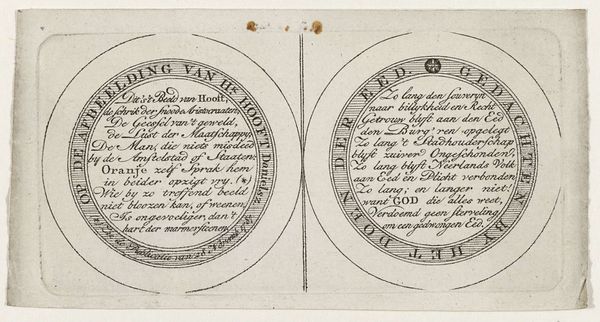 OP DE AFBEELDING VAN Hr. HOOFT Danielsz.
Dit is 't Beeld van Hooft,
de schrik der snoode Aristocraaten
De Geessel van 't geweld,
de Lust der Maatschappy,
De Man, die niets misdeed
by de Amstelstad of Staaten:
Oranje zelf sprak hem
in beider opzigt vry. (*)
Wie by zo treffend beeld
niet bloozen kan, of weenen,
Is ongevoeliger, dan 't
hart der marmersteenen
de Publicatie van
GEDACHTEN BY HET DOEN DER EED.
Zo lang den Souveryn
naar billykheid en Recht
Getrouw blyft aan den Eed
den Burg'ren opgelegt
Zo lang 't Stadhouderschap
blyft zuiver Ongeschonden,
Zo lang blyft Neerlands Volk
aan Eed en Plicht verbonden
Zo lang; en langer niet!
want GOD die alles weet,
Verdoemd geen sterveling
om een gedwongen Eed.